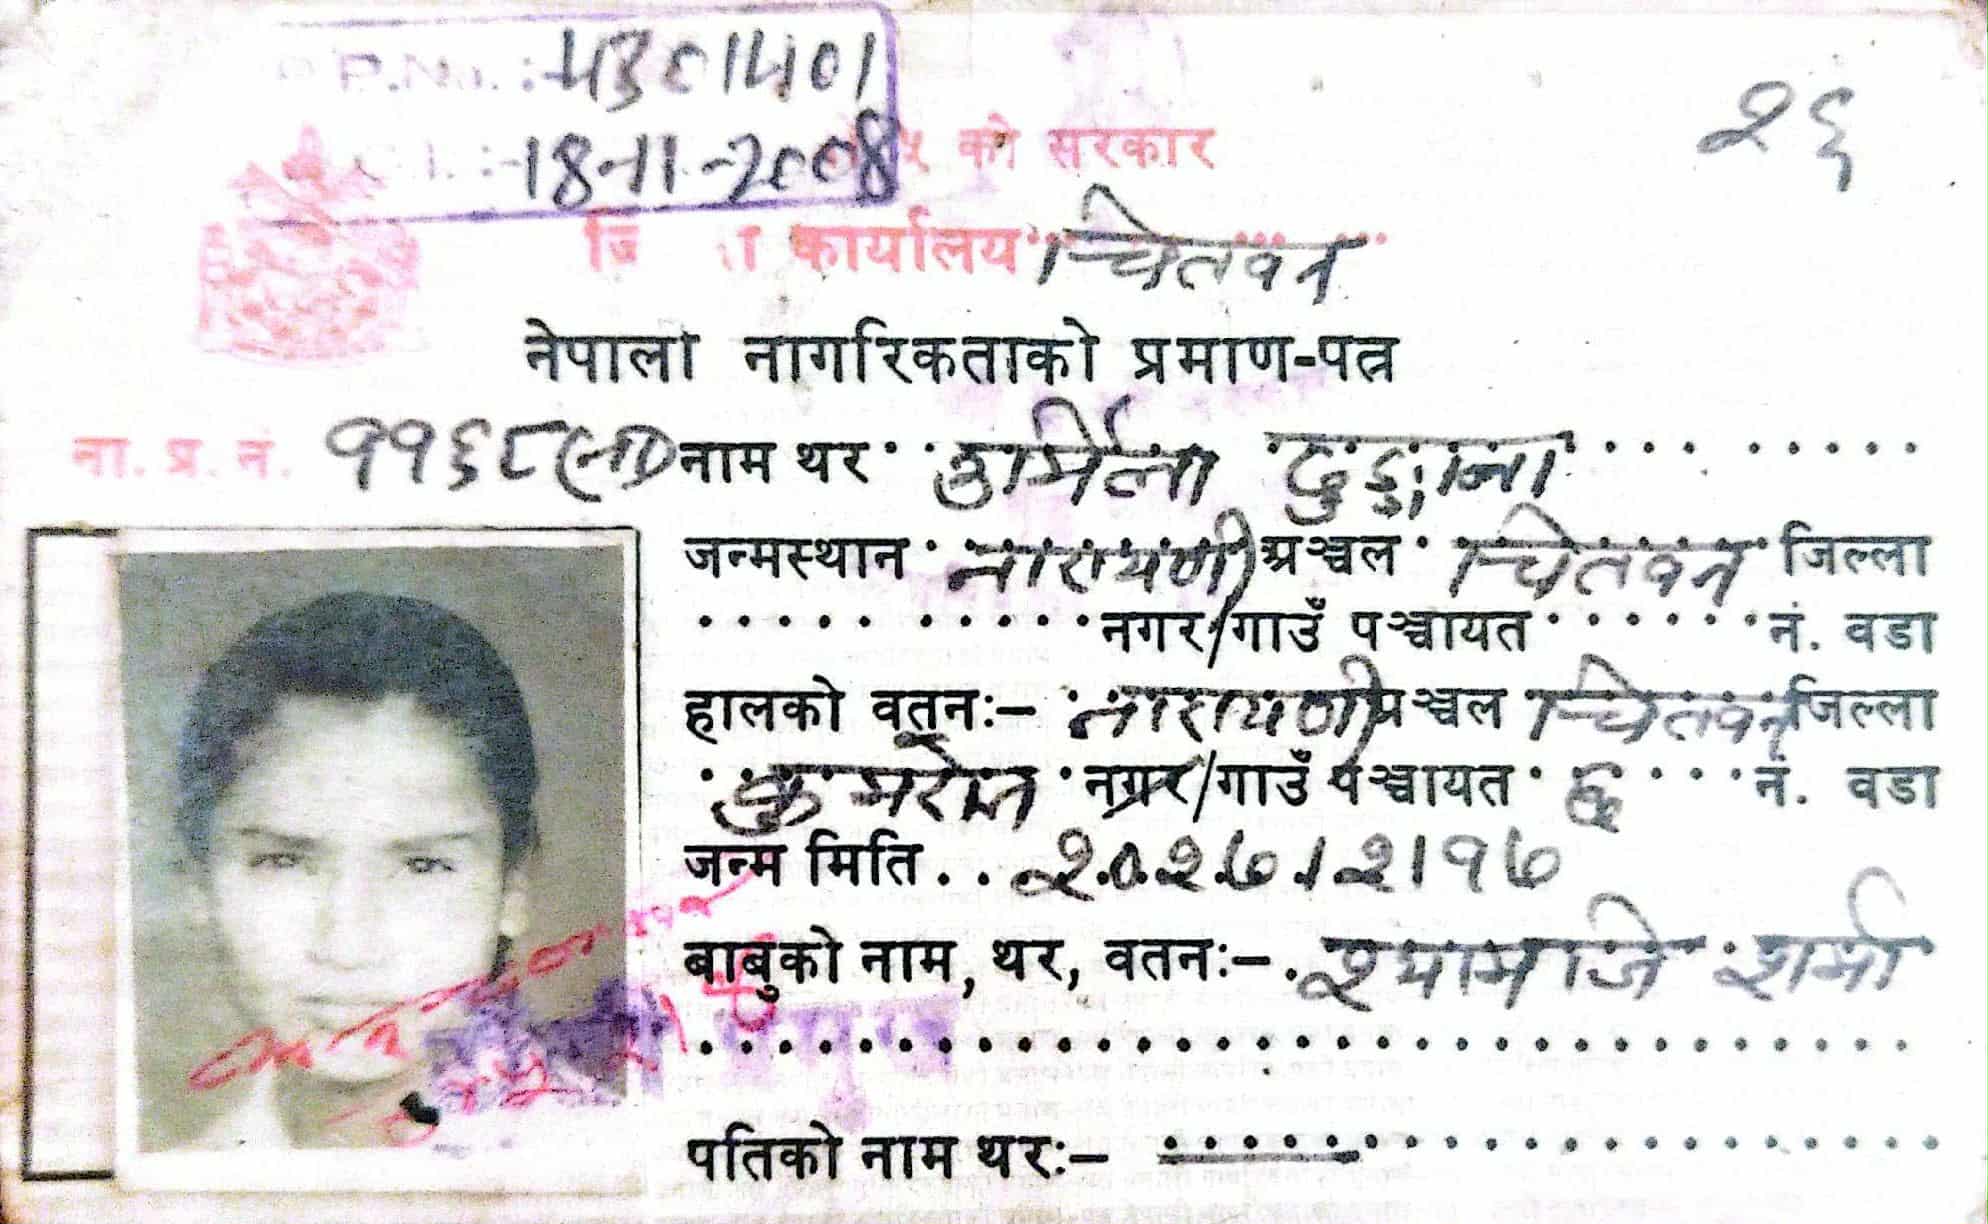 P.No.:-4301401
२६
:-18-11-2008
५ को सरकार
कार्यालय चितवन
नेपाली नागरिकताको प्रमाण-पत्र
ना. प्र. नं. ११६८ नाम थर उर्मिला
जन्मस्थान नारायणी अञ्चल चितवन जिल्ला
नगर/गाउँ पञ्चायत नं. वडा
हालको वतन:- नारायणी अञ्चल चितवन जिल्ला
नगर/गाउँ पञ्चायत ६ नं. वडा
जन्म मिति २०२७।२।१७
बाबुको नाम, थर, वतन:- शर्मा
पतिको नाम थर:-